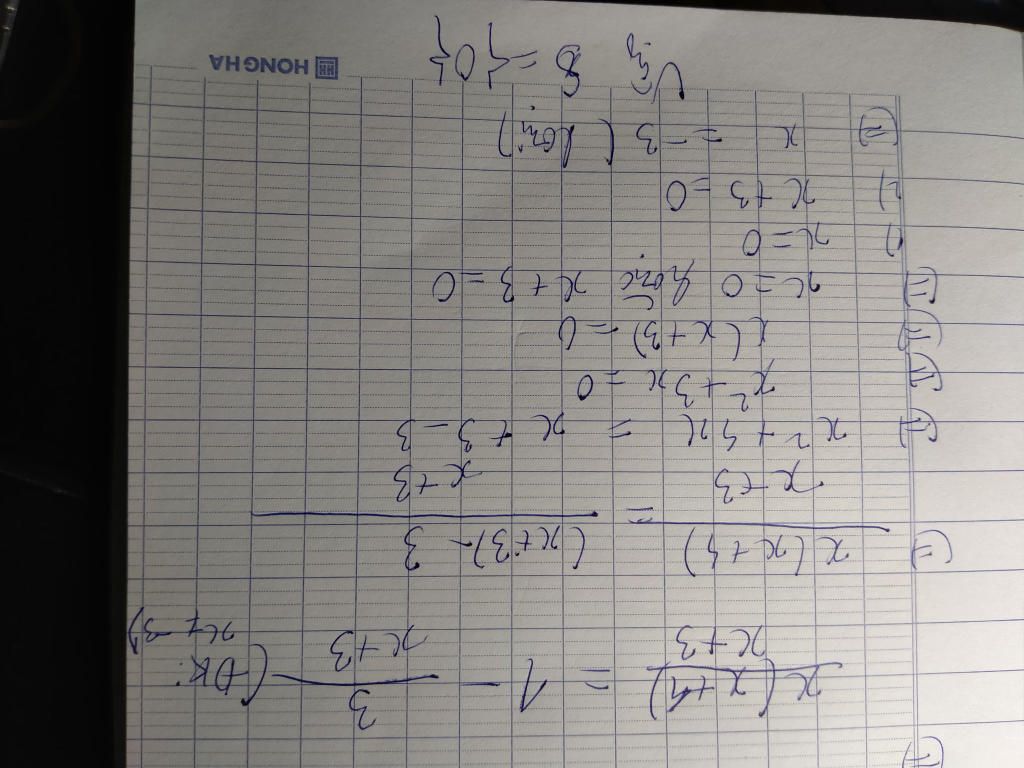 ⇔
x(x+4)/x+3 = 1 - 3/x+3 (ĐK: x ≠ -3)
⇔ x(x+4)/x+3 = (x+3)-3/x+3
⇔ x² + 4x = x+3-3
⇔ x² + 3x = 0
⇔ x(x+3) = 0
⇔ x = 0 hoặc x+3 = 0
1) x = 0
2) x+3 = 0
⇔ x = -3 (loại)
Vậy S = {0}
HONG HA